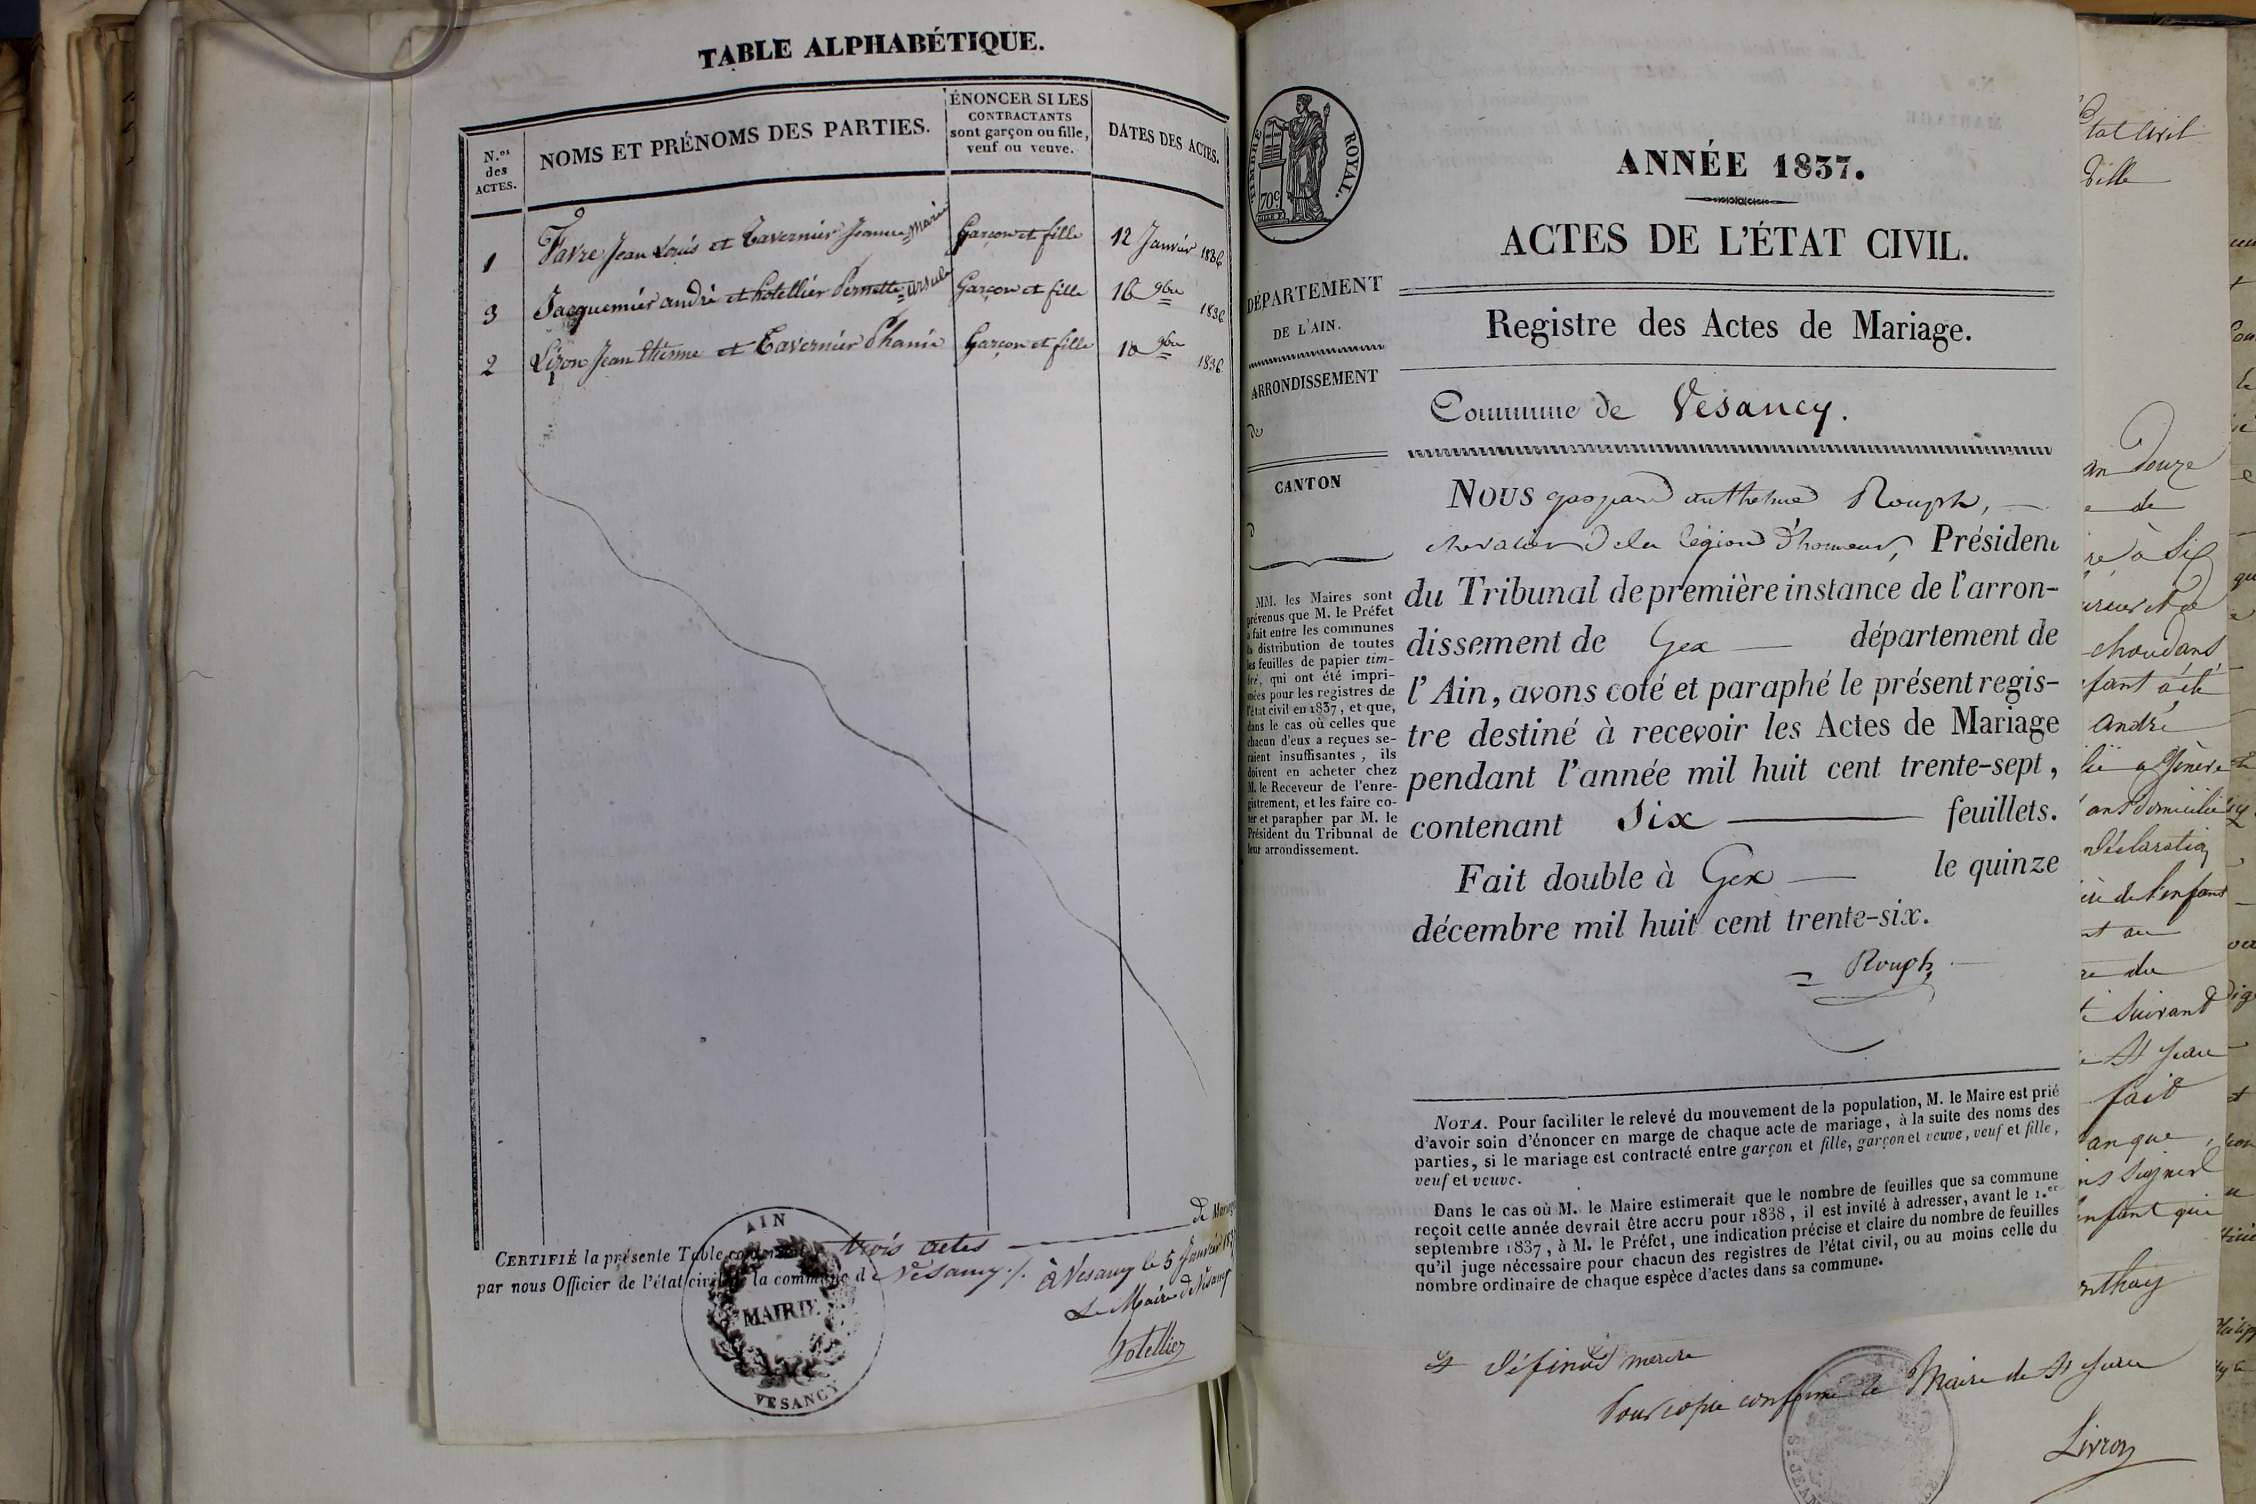 TABLE ALPHABÉTIQUE.
N.os
des
ACTES.
NOMS ET PRÉNOMS DES PARTIES.
ÉNONCER SI LES
CONTRACTANTS
sont garçon ou fille,
veuf ou veuve.
DATES DES ACTES.
1 Favre Jean Louis et Tavernier Jeanne Marie Garçon et fille 12 Janvier 1836
3 Jacquemier andré et hotellier Pernette ursule Garçon et fille 16 9bre 1836
2 Lizon Jean Etienne et Tavernier Phanie Garçon et fille 10 9bre 1836
CERTIFIÉ la présente Table contenant trois actes de Mariage
par nous Officier de l'état civil de la commune de Vesancy ./. à Vesancy le 5 Janvier
Le Maire de Vesancy
hotellier
AIN
MAIRIE
VESANCY
TIMBRE ROYAL.
70c.
DÉPARTEMENT
DE L'AIN.
ARRONDISSEMENT
de
CANTON
d
MM. les Maires sont
prévenus que M. le Préfet
a fait entre les communes
la distribution de toutes
les feuilles de papier tim-
bré, qui ont été impri-
mées pour les registres de
l'état civil en 1837, et que,
dans le cas où celles que
chacun d'eux a reçues se-
raient insuffisantes, ils
doivent en acheter chez
M. le Receveur de l'enre-
gistrement, et les faire co-
ter et parapher par M. le
Président du Tribunal de
leur arrondissement.
ANNÉE 1837.
ACTES DE L'ÉTAT CIVIL.
Registre des Actes de Mariage.
Commune de Vesancy.
NOUS gaspard anthelme Rouph,
chevalier de la légion d'honneur, Président
du Tribunal de première instance de l'arron-
dissement de Gex département de
l'Ain, avons coté et paraphé le présent regis-
tre destiné à recevoir les Actes de Mariage
pendant l'année mil huit cent trente-sept,
contenant Six feuillets.
Fait double à Gex le quinze
décembre mil huit cent trente-six.
Rouph
NOTA. Pour faciliter le relevé du mouvement de la population, M. le Maire est prié
d'avoir soin d'énoncer en marge de chaque acte de mariage, à la suite des noms des
parties, si le mariage est contracté entre garçon et fille, garçon et veuve, veuf et fille,
veuf et veuve.
Dans le cas où M. le Maire estimerait que le nombre de feuilles que sa commune
reçoit cette année devrait être accru pour 1838, il est invité à adresser, avant le 1.er
septembre 1837, à M. le Préfet, une indication précise et claire du nombre de feuilles
qu'il juge nécessaire pour chacun des registres de l'état civil, ou au moins celle du
nombre ordinaire de chaque espèce d'actes dans sa commune.
Pour copie conforme le Maire de St Jean
Livron
Etat Civil
Ville
an Douze
de
andré
ans Domicilié
Déclaration
de l'enfant
du
Suivant
St Jean
fait
enfant qui